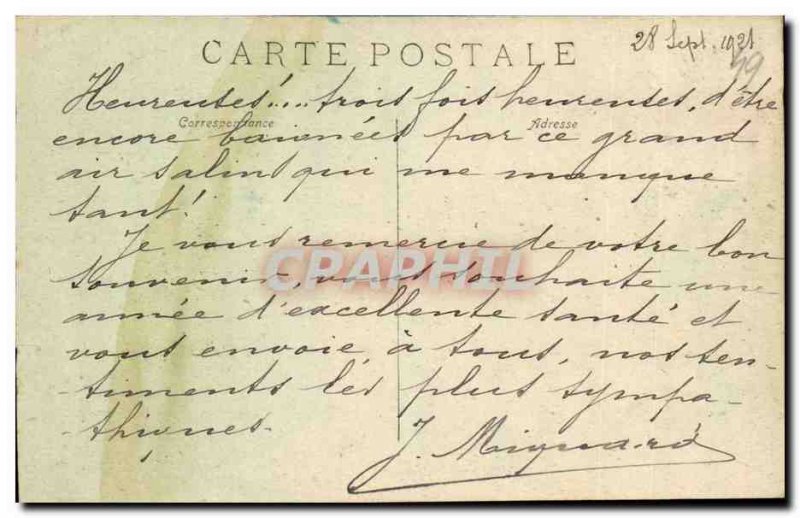 CARTE POSTALE
28 Sept. 1921
59
Heureuses!... trois fois heureuses, d'être
Correspondance
Adresse
encore baignées par ce grand
air salin qui me manque
tant!
Je vous remercie de votre bon
souvenir, vous souhaite une
CPAPHIL
année d'excellente santé et
vous envoie, à tous, nos sen-
timents les plus sympa-
thiques.
J. Mignard